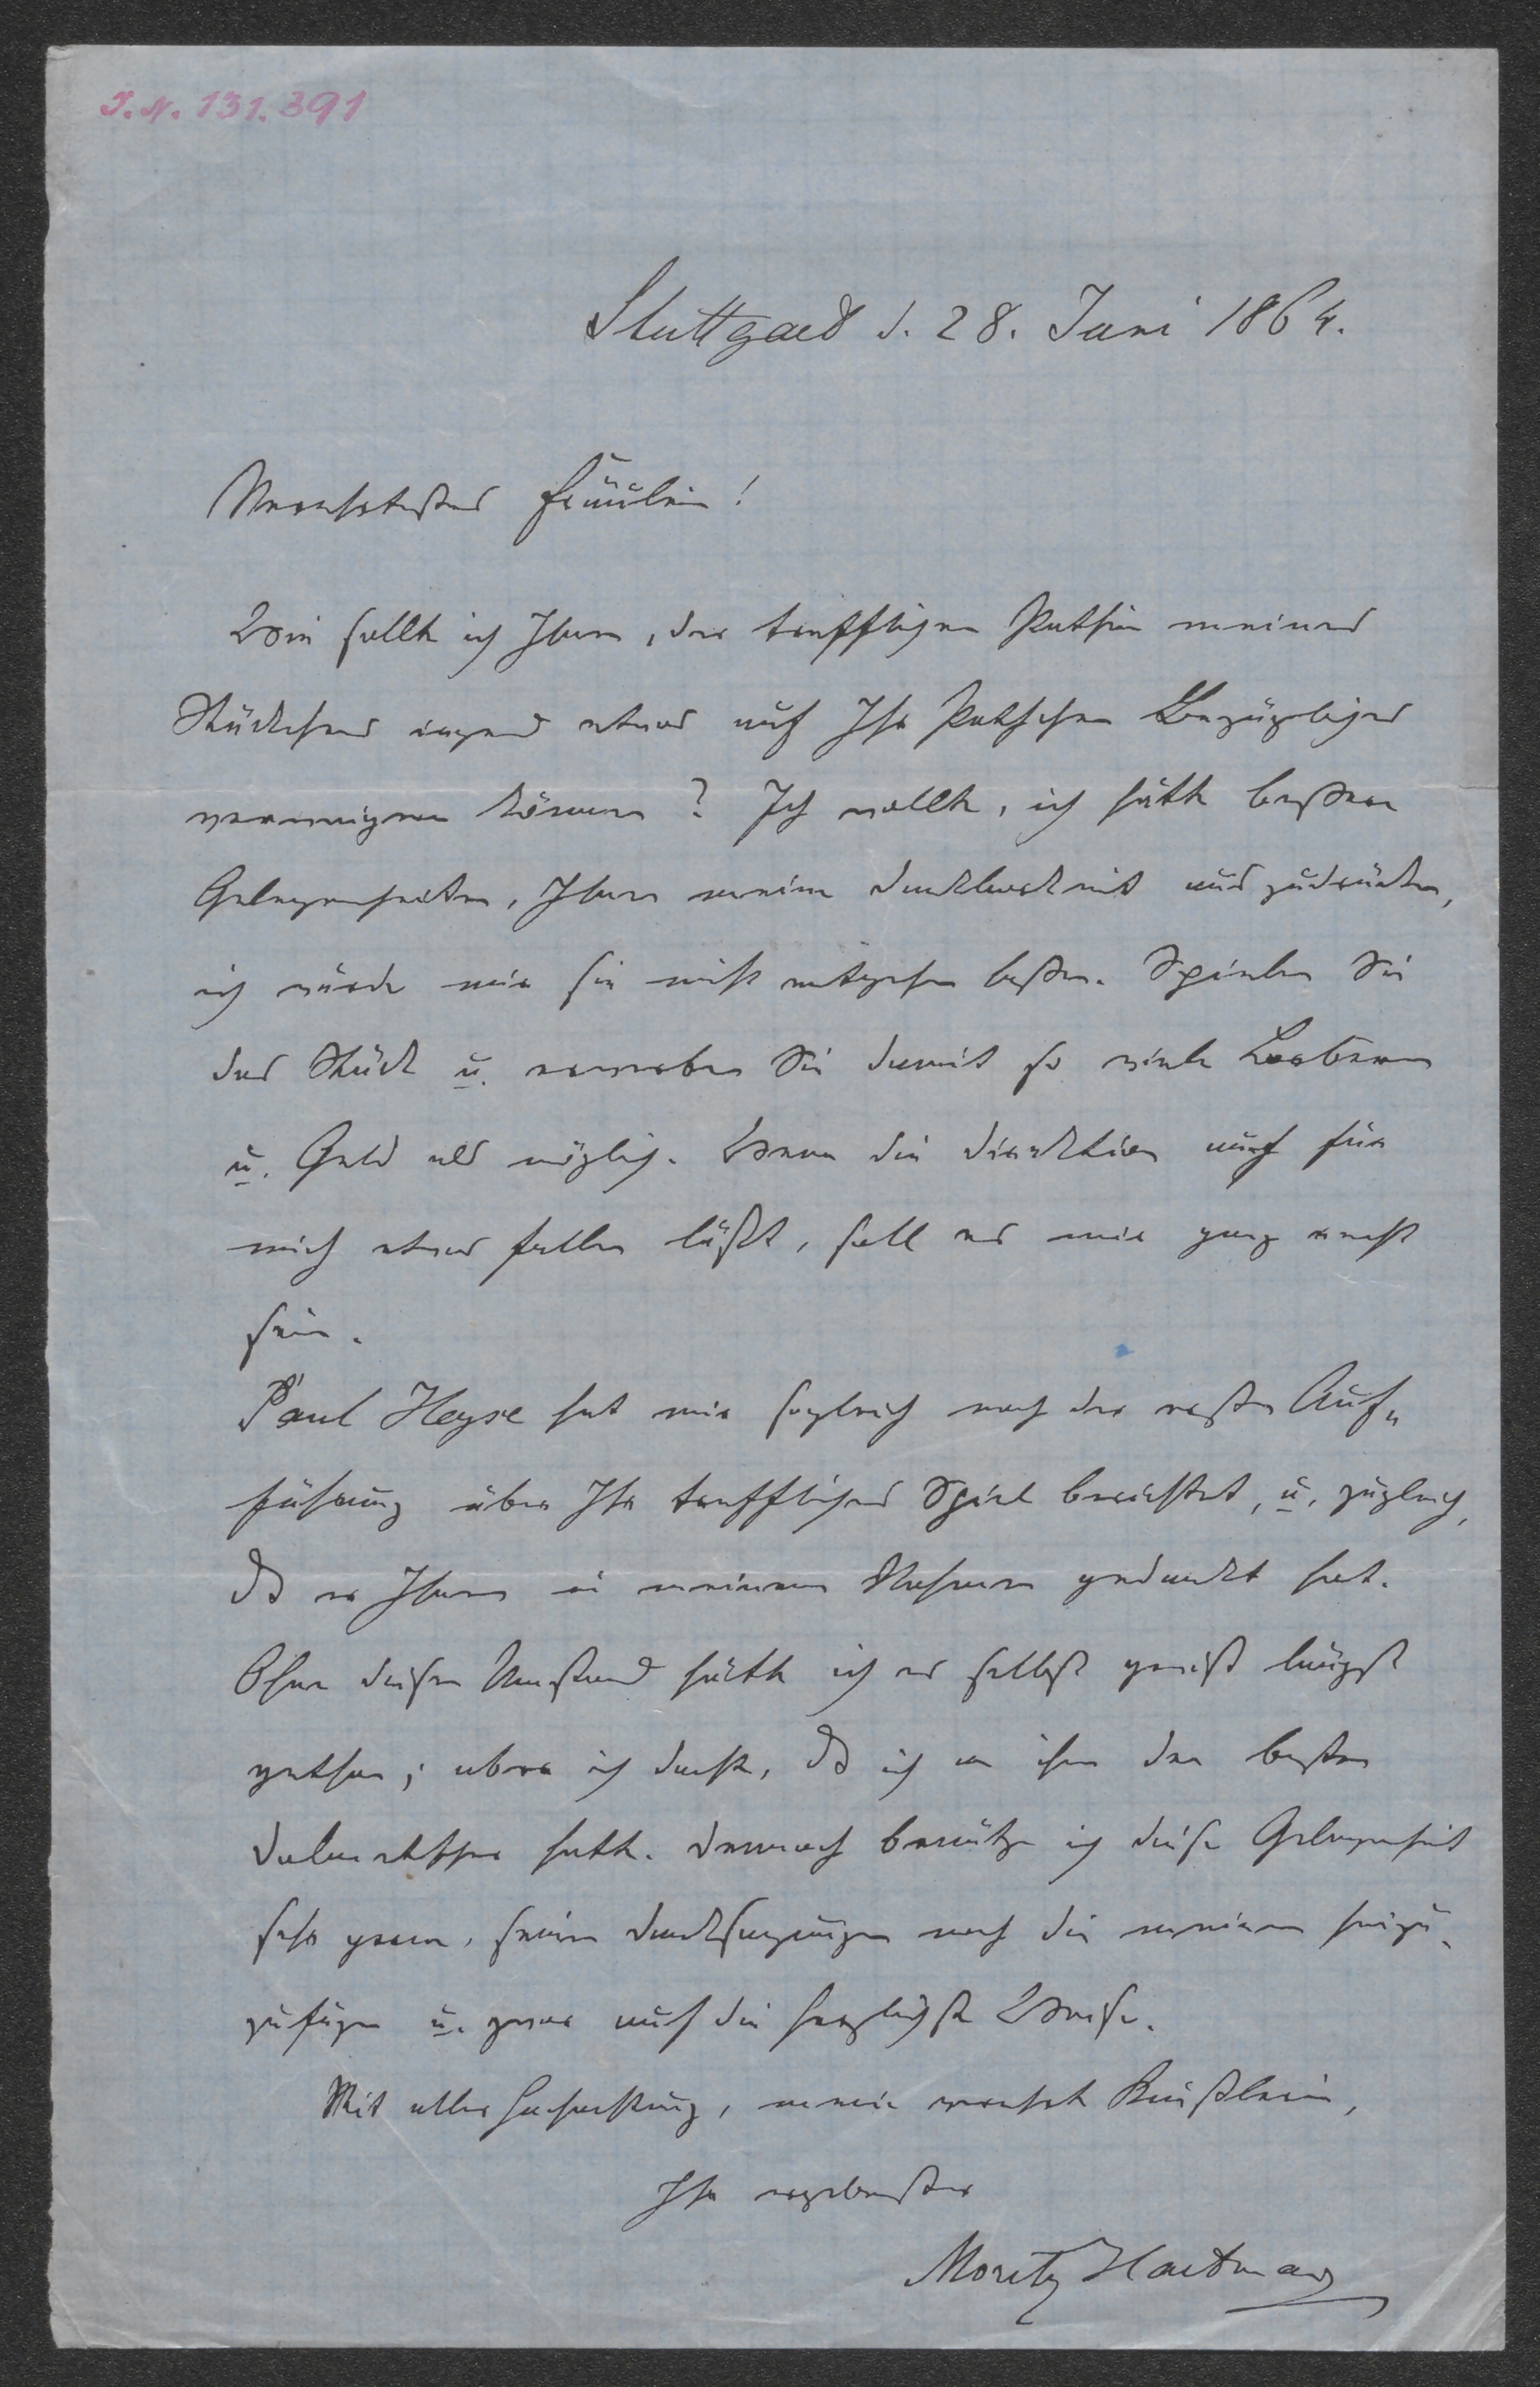 I.N. 131.391
Stuttgart d. 28. Juni 1864.
Verehrtestes Fräulein!
Wie sollte ich Ihnen, der trefflichen Pathin meines
Stückchens irgend etwas auf Ihr Pathchen Bezügliches
verweigern können? Ich wollte, ich hätte bessere
Gelegenheiten, Ihnen meine Dankbarkeit auszudrücken,
ich würde mir sie nicht entgehen lassen. Spielen Sie
das Stück u. erwerben Sie damit so viele Lorbeeren
u. Geld als möglich. Wenn die Direktion auch für
mich etwas fallen läßt, soll es mir ganz recht
sein.
Paul Heyse hat mir sogleich nach der ersten Auf„
führung über Ihr treffliches Spiel berichtet, u. zugleich,
daß er Ihnen in meinem Nahmen gedankt hat.
Ohne diesen Umstand hätte ich es selbst gewiß längst
gethan; aber ich dachte, daß ich an ihm den besten
Dolmetscher hatte. Dennoch benütze ich diese Gelegenheit
sehr gerne, seinen Danksagungen noch die meinen hinzu„
zufügen u. zwar auf die herzlichste Weise.
Mit aller Hochachtung, meine verehrte Künstlerin,
Ihr ergebenster
Moritz Hartmann